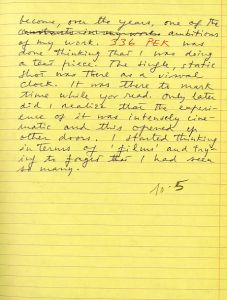 become, over the years, one of the
constants in my works ambitions
of my work. 336 PEK was
done thinking that I was doing
a text piece. The single, static
shot was there as a visual
clock. It was there to mark
time while you read. Only later
did I realize that the experi-
ence of it was intensely cine-
matic and this opened up
other doors. I started thinking
in terms of 'films' and try-
ing to forget that I had seen
so many.
10.5